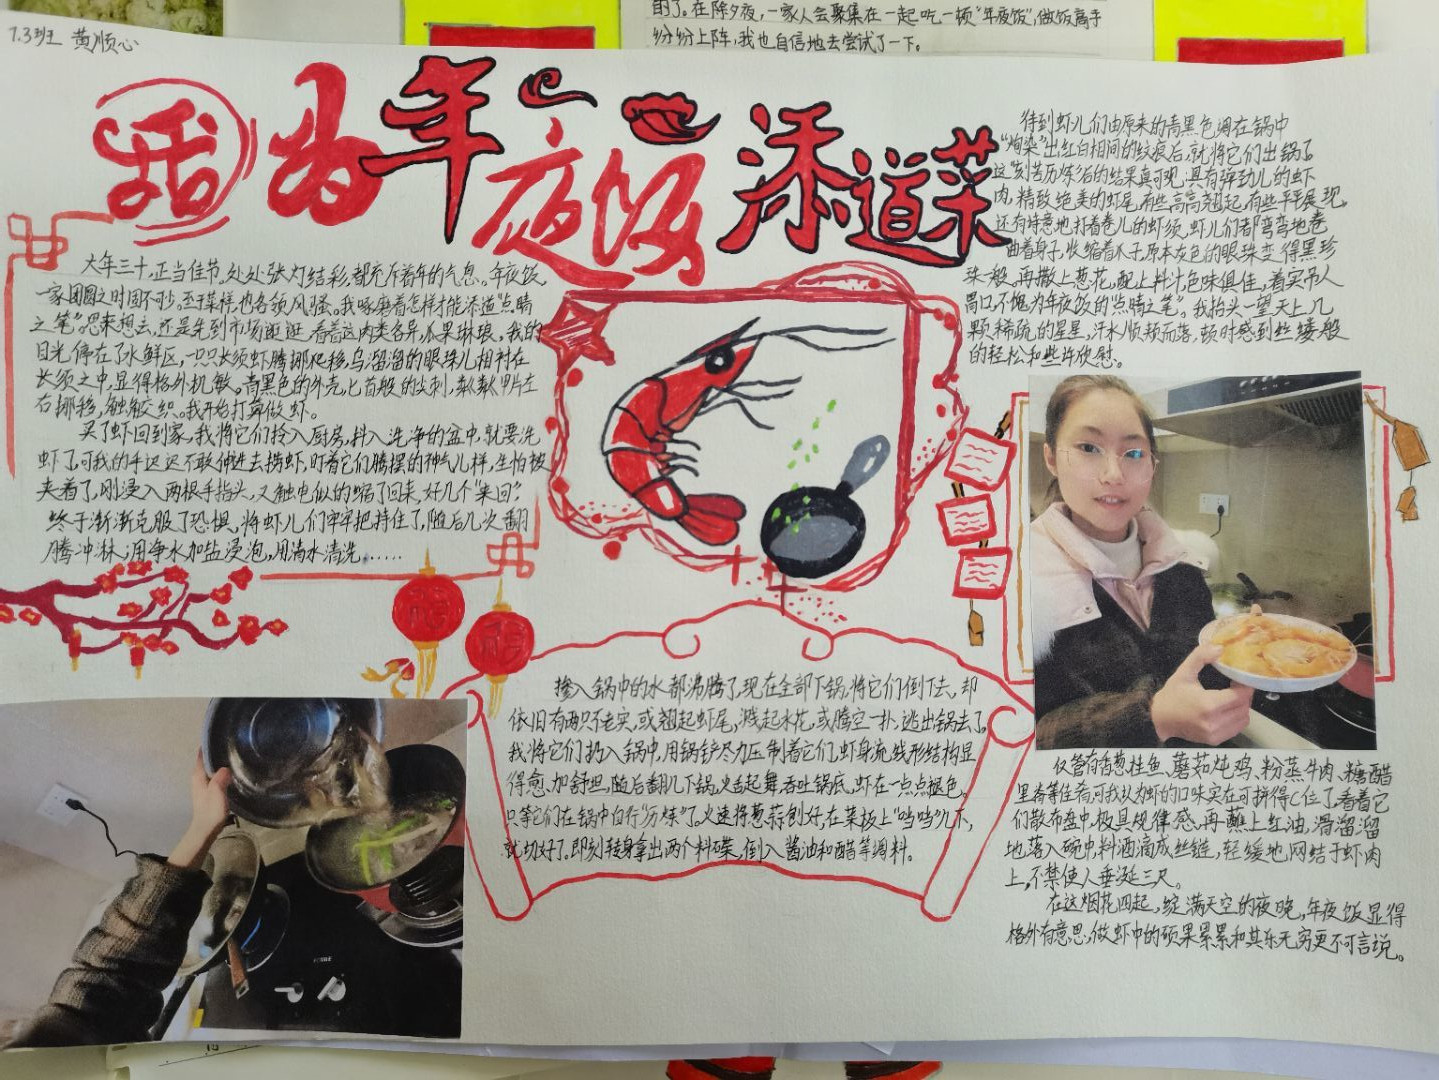 的了。在除夕夜，一家人会聚集在一起吃一顿“年夜饭”，做饭高手
纷纷上阵，我也自信地去尝试了一下。
7.3班 黄顺心
话
为年夜饭添道菜
大年三十，正当佳节，处处张灯结彩，都充斥着年的气息。年夜饭，
一家团圆之时固不少。至于菜样，也各领风骚。我啄磨着怎样才能添道“点睛
之笔”。思来想去，还是先到市场逛逛，看着这肉类各异，瓜果琳琅。我的
目光停在了水鲜区，一只只长须虾腾挪爬移，乌溜溜的眼珠儿相衬在
长须之中，显得格外机敏。青黑色的外壳，匕首般的尖刺，
右挪移，触须交织。我开始打算做虾。
买了虾回到家，我将它们拎入厨房，抖入洗净的盆中，就要洗
虾了，可我的手迟迟不敢伸进去捞虾，盯着它们腾摆的神气儿样，生怕被
夹着了，刚浸入两根手指头，又触电似的缩了回来，好几个“来回”。
终于渐渐克服了恐惧，将虾儿们牢牢把持住了，随后几次翻
腾冲淋，用净水加盐浸泡，用清水清洗……
福
福
掺入锅中的水都沸腾了，现在全部下锅，将它们倒下去，却
依旧有两只不老实，或翘起虾尾，溅起水花，或腾空一扑，逃出锅去了。
我将它们扔入锅中，用锅铲尽力压制着它们，虾身流线形结构显
得愈加舒坦，随后翻几下锅，火舌起舞吞吐锅底，虾在一点点褪色，
只等它们在锅中自行“分煤”了。火速将葱蒜刨好，在菜板上“当当”几下，
就切好了。即刻转身拿出两个料碟，倒入酱油和醋等调料。
待到虾儿们由原来的青黑色调在锅中
“炮染”出红白相间的纹痕后，就将它们出锅了。
这“刻苦历炼”后的结果真可观，具有弹劲儿的虾
肉，精致绝美的虾尾，有些高高翘起，有些平平展现。
还有特意地打着卷儿的虾须，虾儿们都弯弯地卷
曲着身子，收缩着爪子，原本灰色的眼珠变得黑珍
珠一般，再撒上葱花，配上料汁，色味俱佳，着实吊人
胃口，不愧为年夜饭的“点睛之笔”。我抬头一望天上几
颗稀疏的星星，汗水顺颊而落，顿时感到丝缕般
的轻松和些许欣慰。
仅管有香葱桂鱼、蘑菇炖鸡、粉蒸牛肉、糖醋
里脊等佳肴，可我认为虾的口味实在可拼得C位了，看着它
们散布盘中，极具规律感，再蘸上红油，滑溜溜
地落入碗中，料酒滴成丝链，轻缓地网结于虾肉
上，不禁使人垂涎三尺。
在这烟花四起，绽满天空的夜晚，年夜饭显得
格外有意思，做虾中的硕果累累和其乐无穷更不可言说。